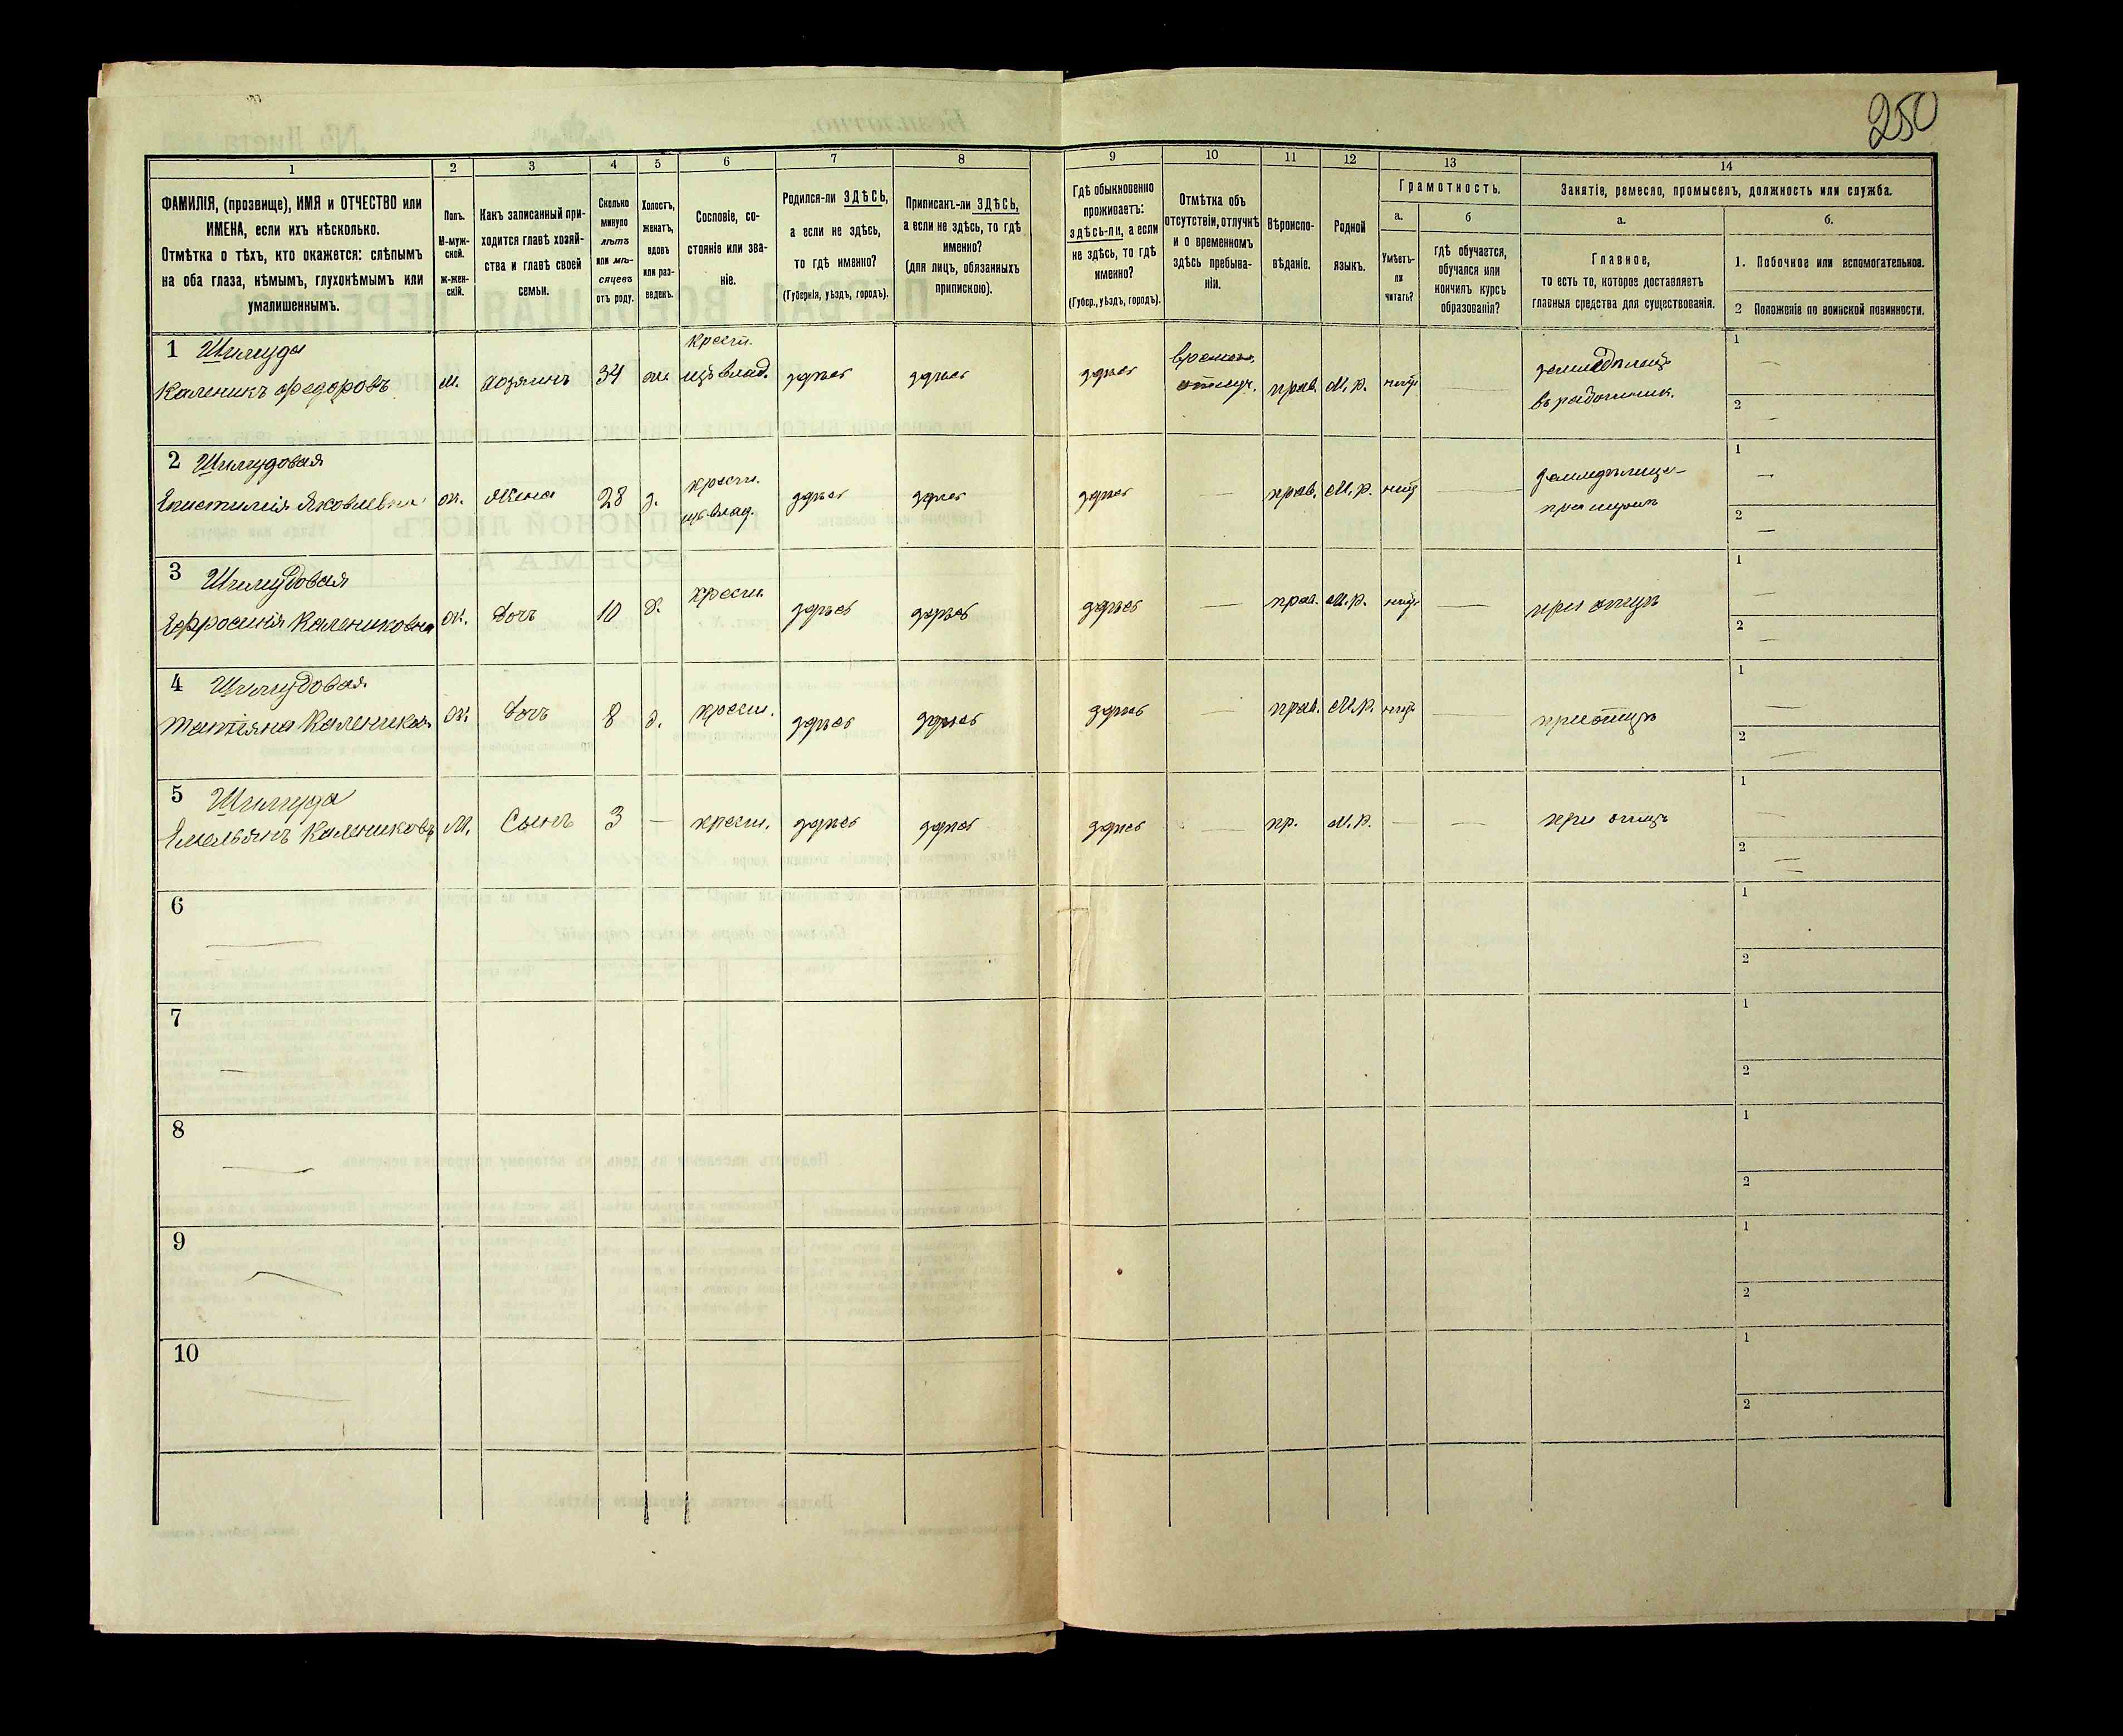 250
1
2
3
4
5
6
7
8
9
10
11
12
13
14
ФАМИЛІЯ, (прозвище), ИМЯ и ОТЧЕСТВО или
ИМЕНА, если ихъ нѣсколько.
Отмѣтка о тѣхъ, кто окажется: слѣпымъ
на оба глаза, нѣмымъ, глухонѣмымъ или
умалишеннымъ.
Полъ.
М-муж-
ской.
ж-жен-
скій.
Какъ записанный при-
ходится главѣ хозяй-
ства и главѣ своей
семьи.
Сколько
минуло
лѣтъ
или мѣ-
сяцевъ
отъ роду.
Холостъ,
женатъ,
вдовъ
или раз-
веденъ.
Сословіе, со-
стояніе или зва-
ніе.
Родился-ли ЗДѢСЬ,
а если не здѣсь,
то гдѣ именно?
(Губернія, уѣздъ, городъ).
Приписанъ-ли ЗДѢСЬ,
а если не здѣсь, то гдѣ
именно?
(для лицъ, обязанныхъ
припискою).
Гдѣ обыкновенно
проживаетъ:
здѣсь-ли, а если
не здѣсь, то гдѣ
именно?
(Губер., уѣздъ, городъ).
Отмѣтка объ
отсутствіи, отлучкѣ
и о временномъ
здѣсь пребыва-
ніи.
Вѣроиспо-
вѣданіе.
Родной
языкъ.
Грамотность.
а.
Умѣетъ-
ли
читать?
б
гдѣ обучается,
обучался или
кончилъ курсъ
образованія?
Занятіе, ремесло, промыселъ, должность или служба.
а.
Главное,
то есть то, которое доставляетъ
главныя средства для существованія.
б.
1. Побочное или вспомогательное.
2 Положеніе по воинской повинности.
1 Шимуда
Каленикъ Федоровъ м. хозяинъ 34 ж. крест. изъ влад. здѣсь здѣсь здѣсь времен. отлуч. прав. М. р. нѣтъ — 1 — 2 —
2 Шимудовая
Яковлевна ж. Жена 28 з. крест. изъ влад. здѣсь здѣсь здѣсь — прав. М. р. нѣтъ — при мужѣ 1 — 2 —
3 Шимудовая
Ефросинія Калениковна ж. Дочъ 10 д. крест. здѣсь здѣсь здѣсь — прав. М. р. нѣтъ — при отцѣ 1 — 2 —
4 Шимудовая
Татіяна Каленико. ж. Дочъ 8 д. крест. здѣсь здѣсь здѣсь — прав. М. р. нѣтъ — при отцѣ 1 — 2 —
5 Шимуда
Емельянъ Калениковъ М. Сынъ 3 — крест. здѣсь здѣсь здѣсь — пр. М. р. — — при отцѣ 1 — 2 —
6 — 1 2
7 — 1 2
8 — 1 2
9 — 1 2
10 — 1 2